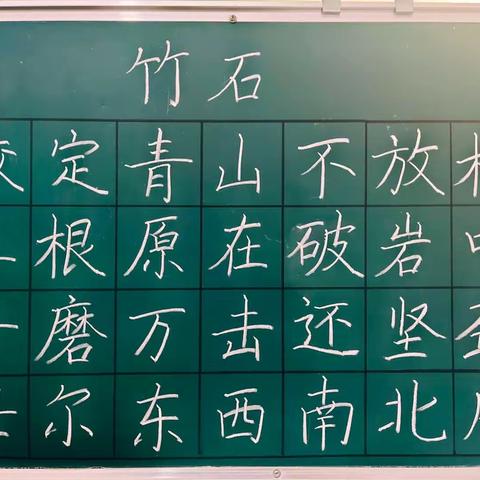 竹石
定青山不放
根原在破岩
磨万击还坚
尔东西南北